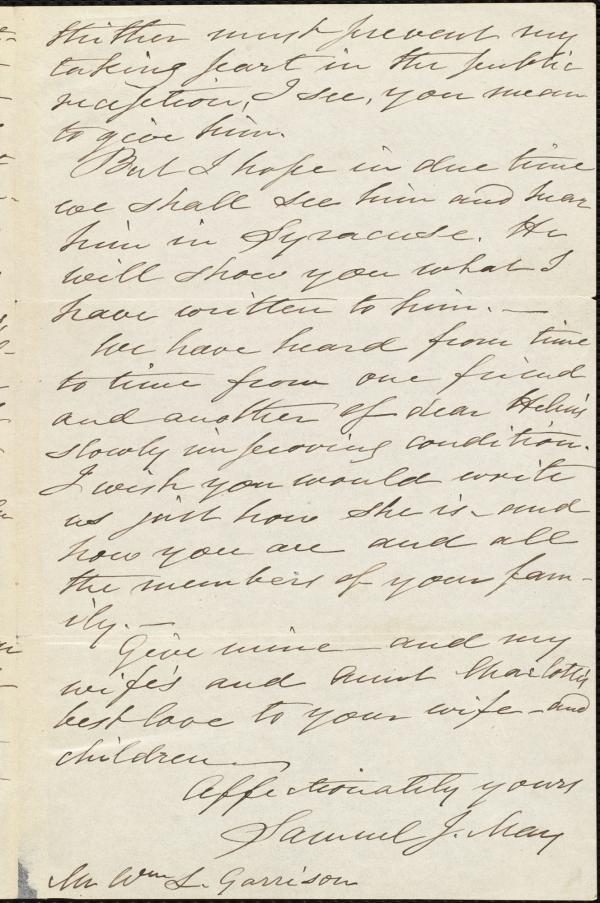 thither must prevent my
taking part in the public
reception, I see, you mean
to give him.
But I hope in due time
we shall see him and hear
him in Syracuse. He
will show you what I
have written to him. —
We have heard from time
to time from one friend
and another of dear Helen's
slowly improving condition.
I wish you would write
us just how she is – and
how you are and all
the members of your fam-
ily. —
Give mine – and my
wife's and Aunt Charlotte's
best love to your wife – and
children —
Affectionately yours
Samuel J. May
Mr Wm L. Garrison